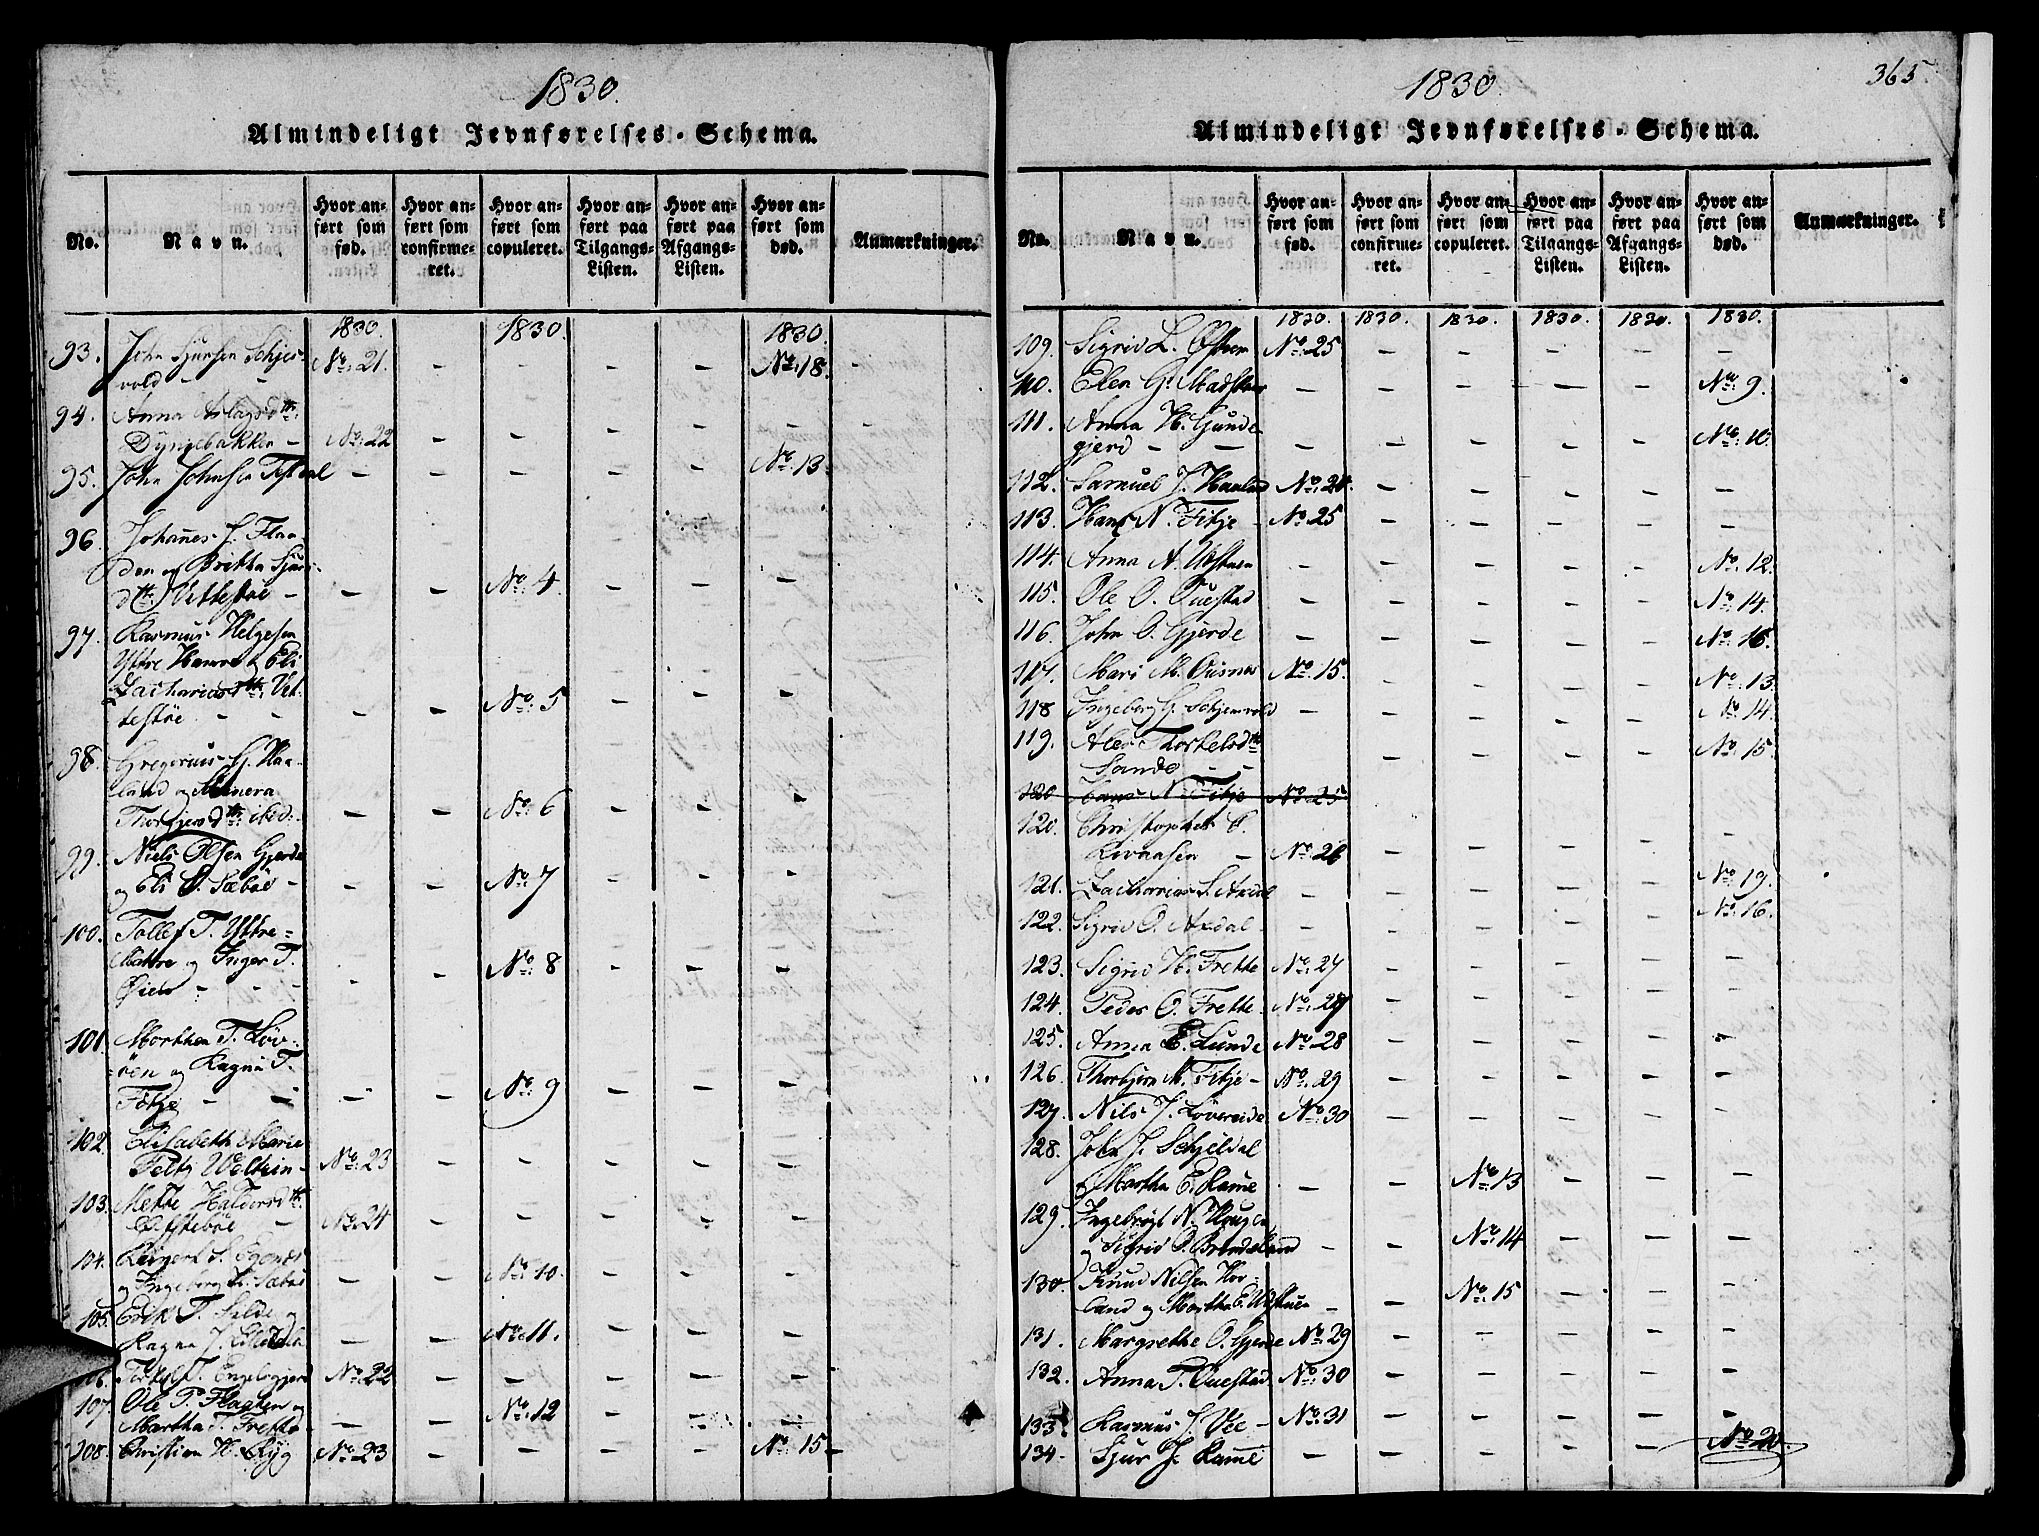 1830.
Almindeligt Jevnførelses-Schema.
No. Navn. Hvor anført som fød. Hvor anført som confirmeret. Hvor anført som copuleret. Hvor anført paa Tilgangs-Listen. Hvor anført paa Afgangs-Listen. Hvor anført som død. Anmærkninger.
1830. 1830. 1830.
93. John Sjursen Schjes-
vold - - No. 21. - - - - No. 18. -
94. Anna Aslagsdtr.
Dyngebakken - No. 22 - - - - -
95. John Johnsen - - - - - No. 13.
96. Johanes J. Flaa-
den og Britha Sjurs-
dtr. Vettestøe - - - No. 4. - - -
97. Rasmus Helgesen
Yttre Hamre & Eli
Zachariasdtr. Vet-
testøe - - - - No. 5 - - -
98. Gregorius G. Haa-
land og
Thorgiersdtr. ibed: - - No. 6 - - -
99. Niels Olsen Gjerde
og Eli O. Sæbøe - - - No. 7 - - -
100. Tollef T. Yttre-
Mattre og Inger T.
Øien - - - - - No. 8 - - -
101. Morthen T. Løv-
øen og Ragna T.
Fitje - - - - No. 9 - - -
102. Elisabeth Marie
No. 23 - - - - -
103. Mette Haldorsdtr.
No. 24 - - - - -
104. S.
og Ingeborg Sæbøe - - No. 10. - - -
105. Erik T. Silde og
Ragna J. - - No. 11. - - -
106. T. Engelsgjerd No. 22 - - - - -
107. Ole P. Flaaten og
Martha T. Frette - - No. 12 - - -
108. Christian H. Ryg No. 23 - - - - No. 15 -
1830. 365.
Almindeligt Jevnførelses-Schema.
No. Navn. Hvor anført som fød. Hvor anført som confirmeret. Hvor anført som copuleret. Hvor anført paa Tilgangs-Listen. Hvor anført paa Afgangs-Listen. Hvor anført som død. Anmærkninger.
1830. 1830. 1830. 1830. 1830. 1830.
109. Sigrid L. Østrem No. 25 - - - - -
110. Elen G. - - - - - No. 9.
111. Anna H. Gunde-
gjerd - - - - - - - No. 10.
112. Samuel J. Haaland No. 24. - - - - -
113. Hans N. Fitje - No. 25 - - - - -
114. Anna A. - - - - - No. 12.
115. Ole O. Øuestad - - - - - No. 14.
116. John O. Gjerde - - - - - No. 16.
117. Mari M. No. 15. - - - - No. 13
118 Ingeborg G. Schjesvold - - - - - No. 14.
119. Thorkelsdtr. No. 15
Sande - - - - - -
120 Hans N. Fitje No. 25
120. Christopher C.
No. 26 - - - - -
121. Zacharias S. Axdal - - - - - No. 19.
122. Sigrid O. Axdal - - - - - No. 16.
123. Sigrid H. Frette No. 27 - - - - -
124. Peder O. Frette No. 27 - - - - -
125. Anna E. Lunde No. 28 - - - - -
126. Thorbjørn N. Fitje - No. 29 - - - - -
127. Nils J. Løvereide No. 30 - - - - -
128. John J. Schjeldal
og Martha E. Rame - - No. 13 - - -
129. Ingebrigt N. Hougen
og Sigrid O. - - No. 14 - - -
130. Knud Nilsen Hov-
land og Martha E. - - No. 15 - - -
131. Margrethe O. Gjerde No. 29 - - - - -
132. Anna T. Øuestad No. 30 - - - - -
133. Rasmus J. Vee - No. 31 - - - - -
134. Sjur J. Rame - - - - - No. 20.